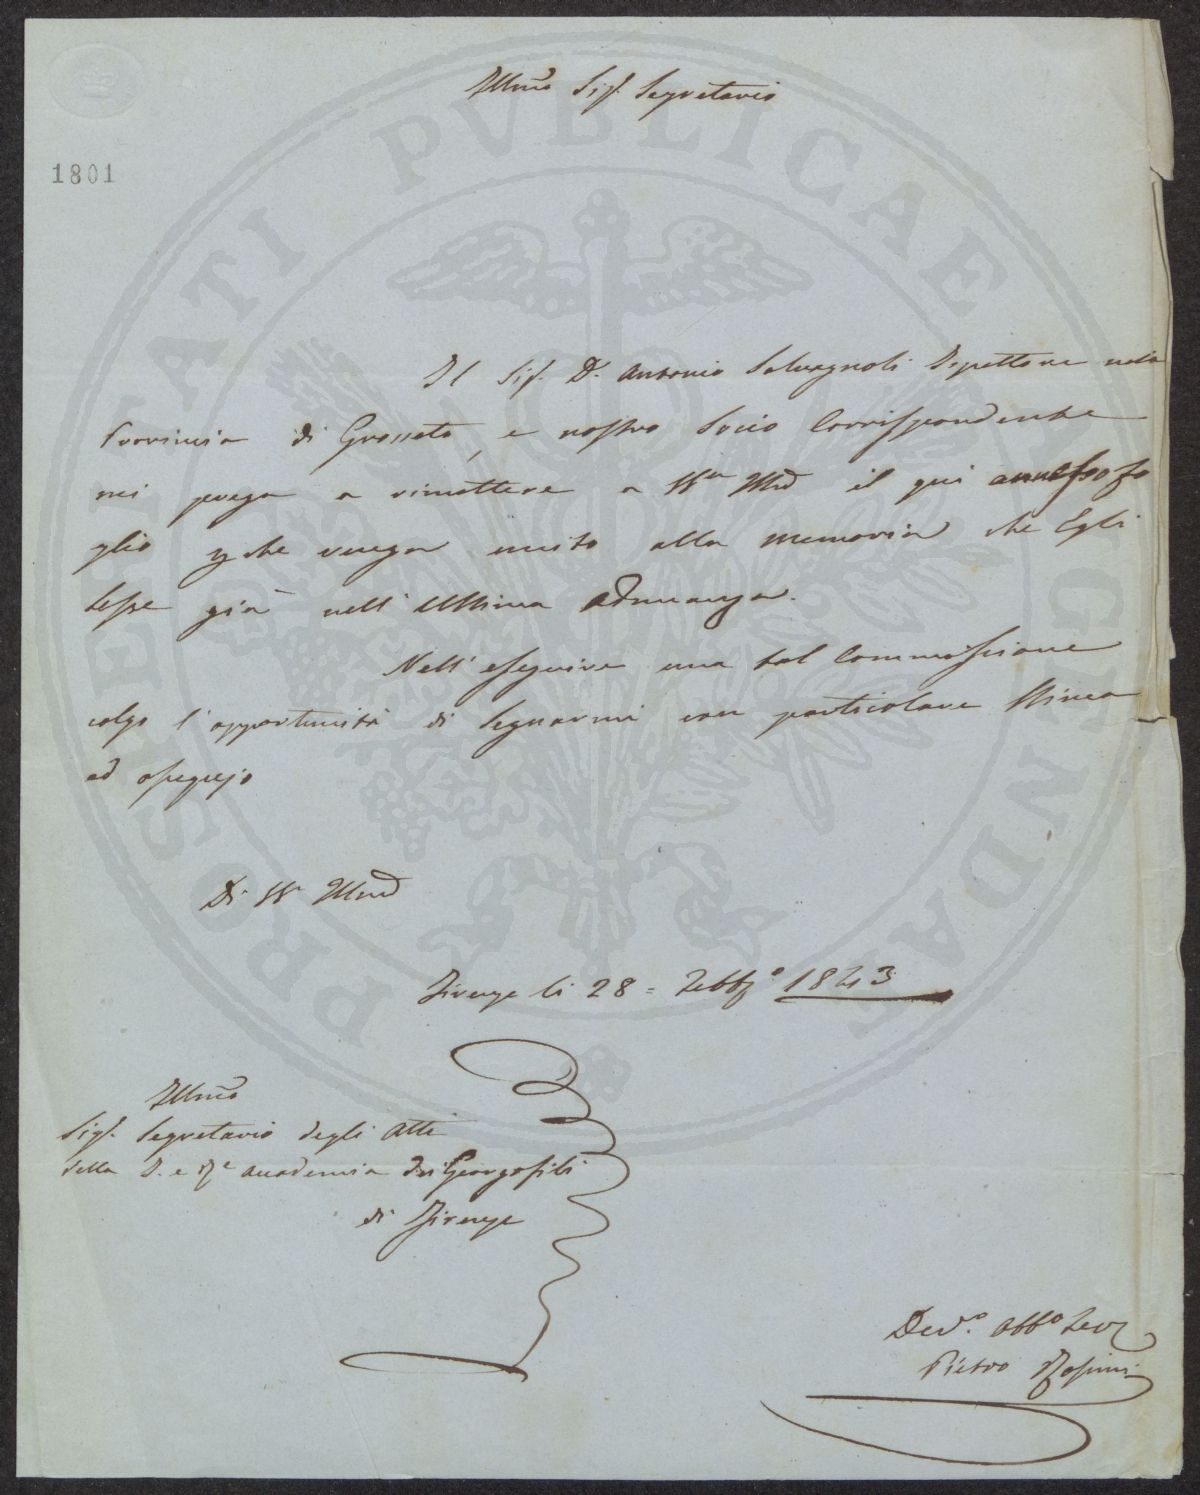 Illmo Sigr. Segretario
1801
Il Sigr. Dr. Antonio Salvagnoli Ispettore nella
Provincia di Grosseto, e nostro Socio Corrispondente
mi prega a rimettere a VS Illma il qui annesso fo
glio che venga unito alla memoria che Egli
lesse già nell'ultima adunanza.
Nell'eseguire una tal Commissione
colgo l'opportunità di segnarmi con particolare stima
ed ossequio
Di VS Illma
Firenze li 28 = Febbo 1843
Illmo
Sigr. Segretario degli Atti
della I. e R. Accademia dei Georgofili
di Firenze
Devo. Obbo Serv
Pietro
PROSPERITATI PVBLICAE AVGENDAE